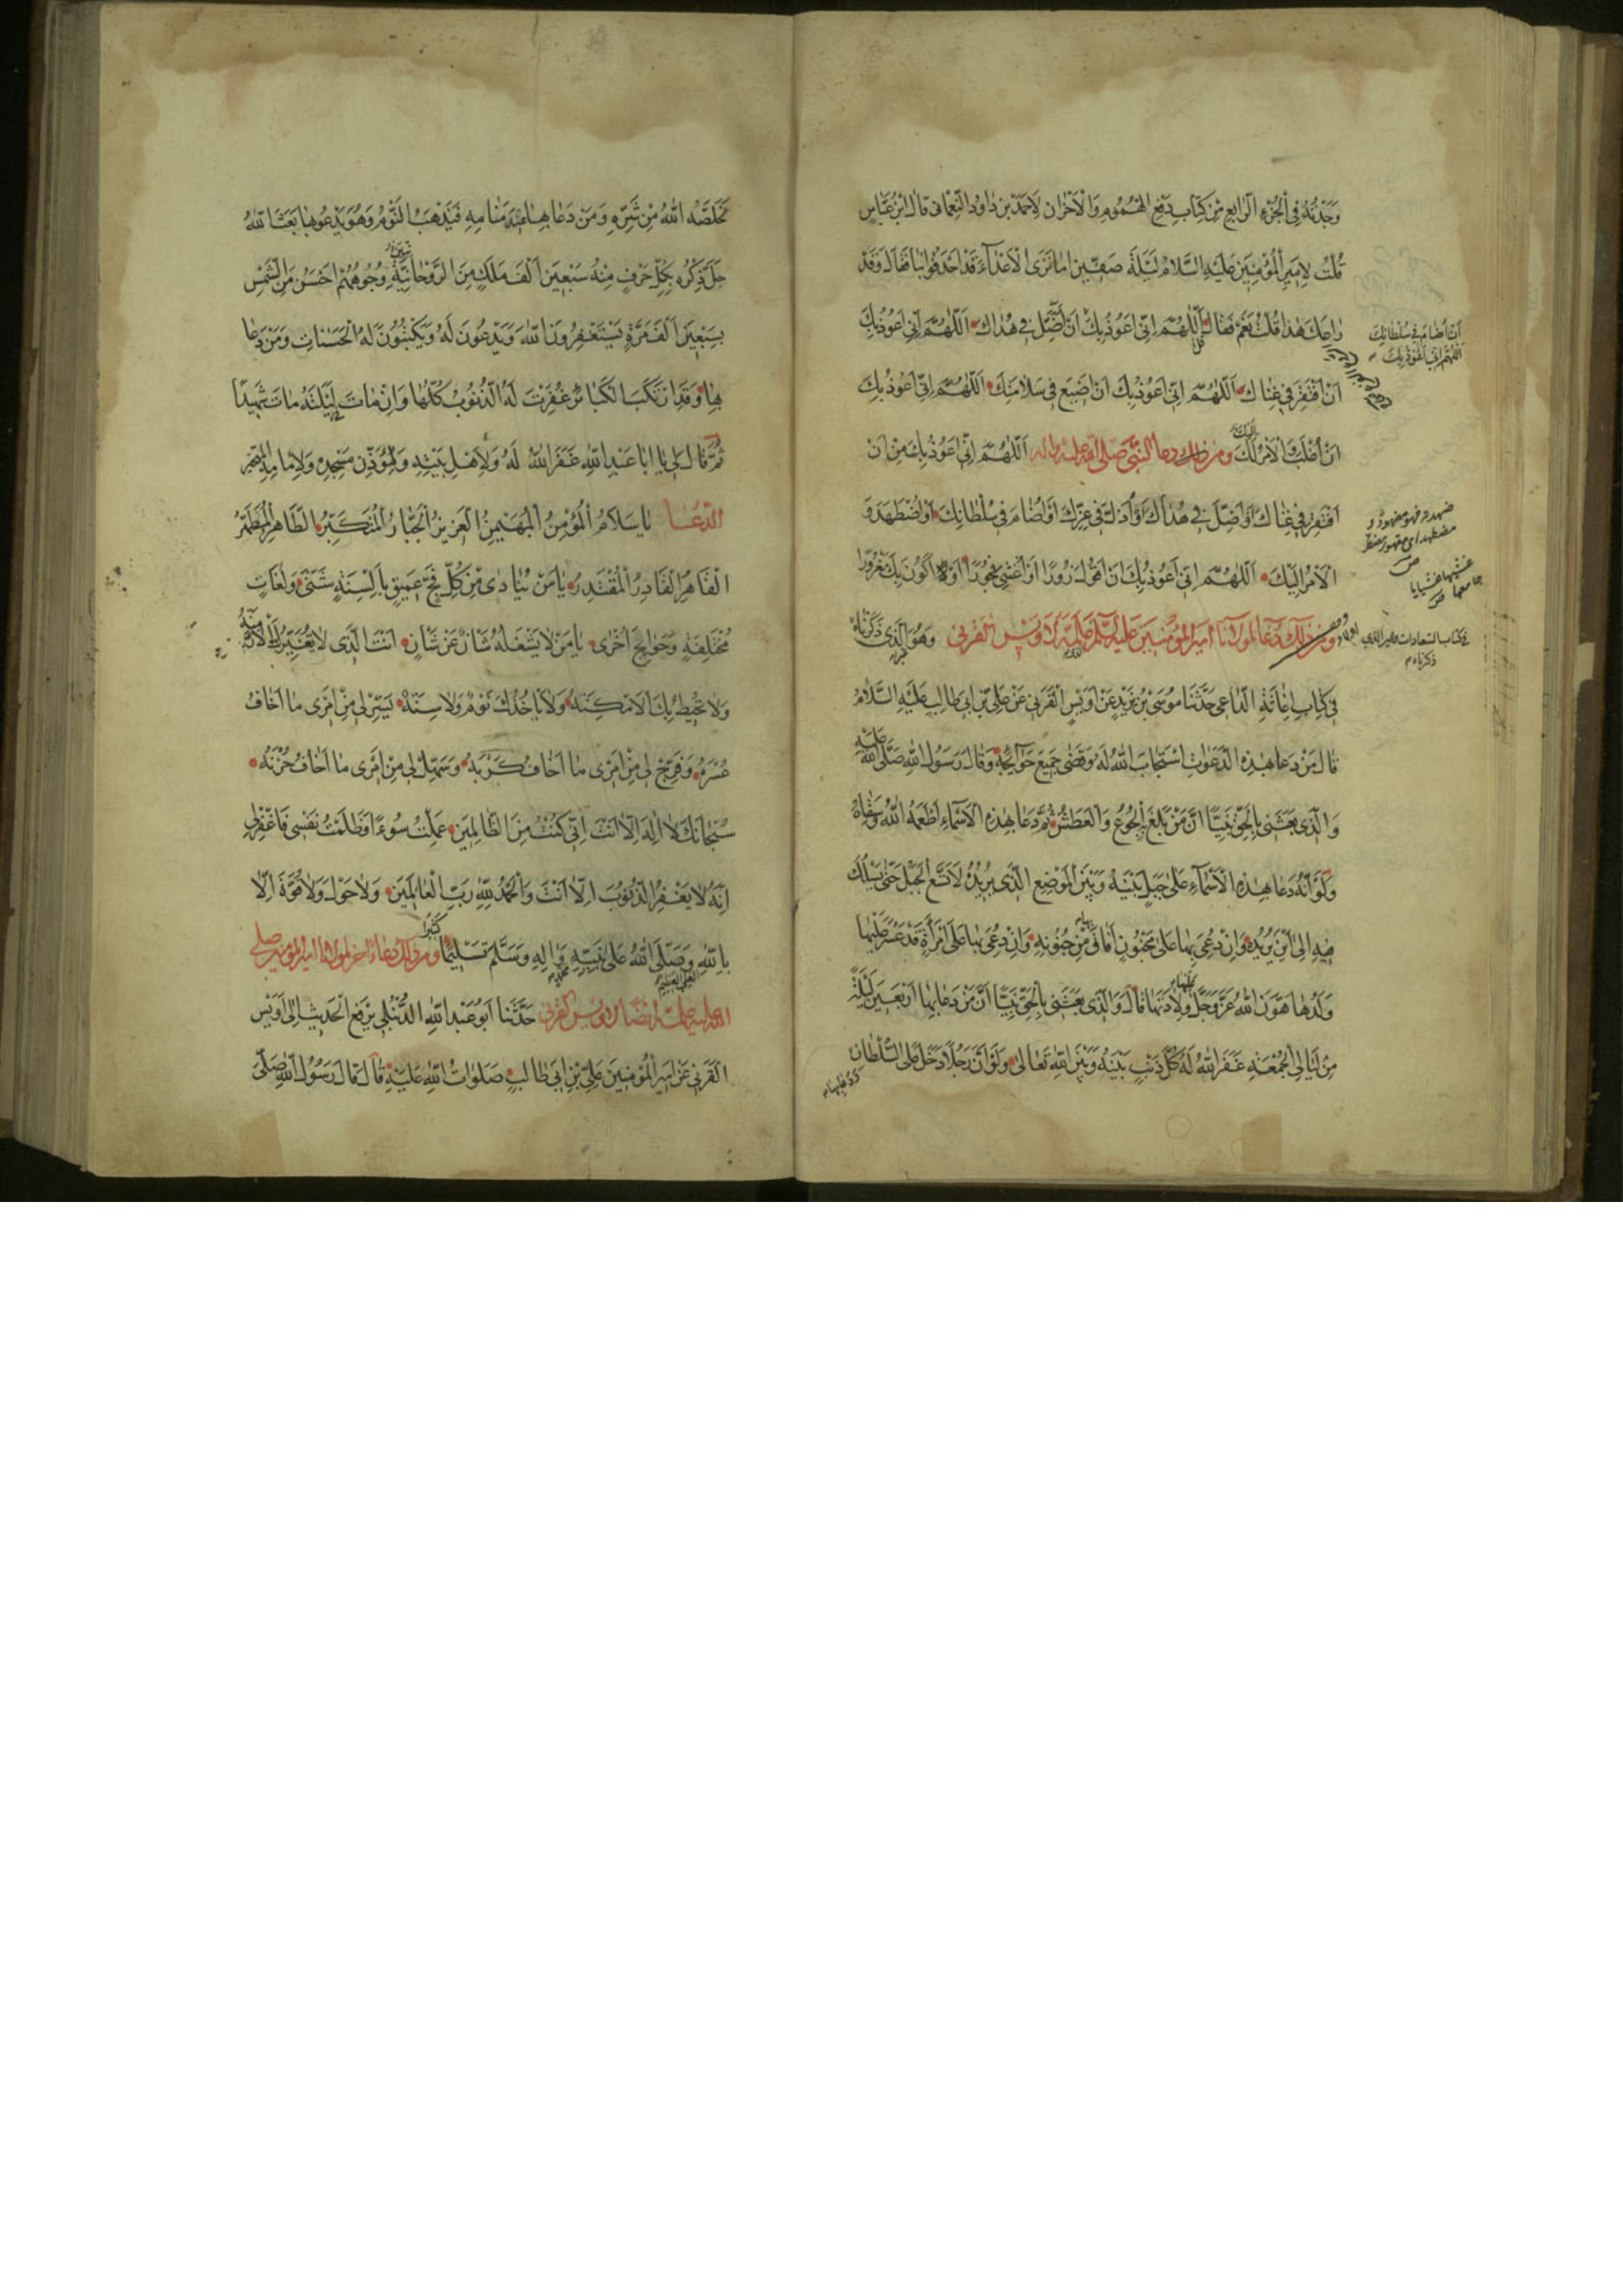 وَجَدْتُهُ فِي الْجُزْءِ الرَّابِعِ مِنْ كِتَابِ دَفْعِ الْهُمُومِ وَالْأَحْزَانِ لِأَحْمَدَ بْنِ دَاوُدَ النُّعْمَانِيِّ قَالَ ابْنُ عَبَّاسٍ
قُلْتُ لِأَمِيرِ الْمُؤْمِنِينَ عَلَيْهِ السَّلَامُ لَيْلَةَ صِفِّينَ أَمَا تَرَى الْأَعْدَاءَ قَدْ أَحْدَقُوا بِنَا فَقَالَ وَقَدْ
رَاعَكَ هٰذَا قُلْتُ نَعَمْ فَقَالَ اَللّٰهُمَّ إِنِّي أَعُوذُ بِكَ أَنْ أَضِلَّ فِي هُدَاكَ اَللّٰهُمَّ إِنِّي أَعُوذُ بِكَ
أَنْ أُضَامَ فِي سُلْطَانِكَ
اللّٰهُمَّ إِنِّي أَعُوذُ بِكَ
أَنْ أَفْتَقِرَ فِي غِنَاكَ اَللّٰهُمَّ إِنِّي أَعُوذُ بِكَ أَنْ أَضِيعَ فِي سَلَامَتِكَ اَللّٰهُمَّ إِنِّي أَعُوذُ بِكَ
أَنْ أُغْلَبَ وَالْأَمْرُ لَكَ وَمِنْ ذٰلِكَ دعاء النَّبِيِّ صَلَّى اللّٰه عليه واله اَللّٰهُمَّ إِنِّي أَعُوذُ بِكَ مِنْ أَنْ
أَفْتَقِرَ فِي غِنَاكَ أَوْ أَضِلَّ فِي هُدَاكَ أَوْ أُذَلَّ فِي عِزِّكَ أَوْ أُضَامَ فِي سُلْطَانِكَ أَوْ أُضْطَهَدَ وَ
الْأَمْرُ إِلَيْكَ اَللّٰهُمَّ إِنِّي أَعُوذُ بِكَ أَنْ أَقُولَ زُورًا أَوْ أَغْشَى فُجُورًا أَوْ أَكُونَ بِكَ مَغْرُورًا
وَمِنْ ذٰلِكَ دُعَاءٌ لِمَوْلَانَا أَمِيرِ الْمُؤْمِنِينَ عَلَيْهِ السَّلَامُ عَلَّمَهُ لِأُوَيْسٍ الْقَرَنِيِّ وَهُوَ الَّذِي ذَكَرْنَاهُ
فِي كِتَابِ إِغَاثَةِ الدَّاعِي حَدَّثَنَا مُوسَى بْنُ يَزِيدَ عَنْ أُوَيْسٍ الْقَرَنِيِّ عَنْ عَلِيِّ بْنِ أَبِي طَالِبٍ عَلَيْهِ السَّلَامُ
قَالَ مَنْ دَعَا بِهٰذِهِ الدَّعَوَاتِ اسْتَجَابَ اللّٰهُ لَهُ وَقَضَى جَمِيعَ حَوَائِجِهِ وَقَالَ رَسُولُ اللّٰهِ صَلَّى اللّٰهُ عَلَيْهِ
وَالَّذِي بَعَثَنِي بِالْحَقِّ نَبِيًّا إِنَّ مَنْ بَلَغَ الْجُوعَ وَالْعَطَشَ ثُمَّ دَعَا بِهٰذِهِ الْأَسْمَاءِ أَطْعَمَهُ اللّٰهُ وَسَقَاهُ
وَلَوْ أَنَّهُ دَعَا بِهٰذِهِ الْأَسْمَاءِ عَلَى جَبَلٍ بَيْنَهُ وَبَيْنَ الْمَوْضِعِ الَّذِي يُرِيدُهُ لَاتَّسَعَ الْجَبَلُ حَتَّى يَسْلُكَ
فِيهِ إِلَى أَيْنَ يُرِيدُهُ وَإِنْ دُعِيَ بِهَا عَلَى مَجْنُونٍ أَفَاقَ مِنْ جُنُونِهِ وَإِنْ دُعِيَ بِهَا عَلَى امْرَأَةٍ قَدْ عَسُرَ عَلَيْهَا
وَلَدُهَا هَوَّنَ اللّٰهُ عَزَّ وَجَلَّ وِلَادَتَهَا قَالَ وَالَّذِي بَعَثَنِي بِالْحَقِّ نَبِيًّا أَنَّ مَنْ دَعَا بِهَا أَرْبَعِينَ لَيْلَةً
مِنْ لَيَالِي الْجُمُعَةِ غَفَرَ اللّٰهُ لَهُ كُلَّ ذَنْبٍ بَيْنَهُ وَبَيْنَ اللّٰهِ تَعَالَى وَلَوْ أَنَّ رَجُلًا دَخَلَ عَلَى السُّلْطَانِ
يُخَلِّصُهُ اللّٰهُ مِنْ شَرِّهِ وَمَنْ دَعَا بِهَا عِنْدَ مَنَامِهِ فَيَذْهَبُ النَّوْمُ وَهُوَ يَدْعُو بِهَا بَعَثَ اللّٰهُ
جَلَّ ذِكْرُهُ بِكُلِّ حَرْفٍ مِنْهُ سَبْعِينَ أَلْفَ مَلَكٍ مِنَ الرَّوْحَانِيَّةِ وُجُوهُهُمْ أَحْسَنُ مِنَ الشَّمْسِ
بِسَبْعِينَ أَلْفَ مَرَّةٍ يَسْتَغْفِرُونَ اللّٰهَ وَيَدْعُونَ لَهُ وَيَكْتُبُونَ لَهُ الْحَسَنَاتِ وَمَنْ دَعَا
بِهَا وَقَدِ ارْتَكَبَ الْكَبَائِرَ غُفِرَتْ لَهُ الذُّنُوبُ كُلُّهَا وَإِنْ مَاتَ لَيْلَتَهُ مَاتَ شَهِيدًا
ثُمَّ قَالَ لِي يَا أَبَا عَبْدِ اللّٰهِ غَفَرَ اللّٰهُ لَهُ وَلِأَهْلِ بَيْتِهِ وَلِمُؤَذِّنِ مَسْجِدِهِ وَلِإِمَامِهِ
الدُّعَاءُ يَا سَلَامُ الْمُؤْمِنُ الْمُهَيْمِنُ الْعَزِيزُ الْجَبَّارُ الْمُتَكَبِّرُ الطَّاهِرُ الْمُطَهِّرُ
الْقَاهِرُ الْقَادِرُ الْمُقْتَدِرُ يَا مَنْ يُنَادَى مِنْ كُلِّ فَجٍّ عَمِيقٍ بِأَلْسِنَةٍ شَتَّى وَلُغَاتٍ
مُخْتَلِفَةٍ وَحَوَائِجَ أُخْرَى يَا مَنْ لَا يَشْغَلُهُ شَأْنٌ عَنْ شَأْنٍ أَنْتَ الَّذِي لَا تُغَيِّرُكَ الْأَزْمِنَةُ
وَلَا تُحِيطُ بِكَ الْأَمْكِنَةُ وَلَا يَأْخُذُكَ نَوْمٌ وَلَا سِنَةٌ يَسِّرْ لِي مِنْ أَمْرِي مَا أَخَافُ
عُسْرَهُ وَفَرِّجْ لِي مِنْ أَمْرِي مَا أَخَافُ كَرْبَهُ وَسَهِّلْ لِي مِنْ أَمْرِي مَا أَخَافُ حُزْنَهُ
سُبْحَانَكَ لَا إِلٰهَ إِلَّا أَنْتَ إِنِّي كُنْتُ مِنَ الظَّالِمِينَ عَمِلْتُ سُوءًا وَظَلَمْتُ نَفْسِي فَاغْفِرْ لِي
إِنَّهُ لَا يَغْفِرُ الذُّنُوبَ إِلَّا أَنْتَ وَالْحَمْدُ لِلّٰهِ رَبِّ الْعَالَمِينَ وَلَا حَوْلَ وَلَا قُوَّةَ إِلَّا
بِاللّٰهِ الْعَلِيِّ الْعَظِيمِ وَصَلَّى اللّٰهُ عَلَى نَبِيِّهِ مُحَمَّدٍ وَآلِهِ وَسَلَّمَ تَسْلِيمًا كَثِيرًا وَمِنْ ذٰلِكَ دُعَاءٌ آخَرُ لِمَوْلَانَا أَمِيرِ الْمُؤْمِنِينَ صلى
اللّٰه عليه علمه أيضا لأويس القرني حَدَّثَنَا أَبُو عَبْدِ اللّٰهِ الدُّبَيْلِيُّ يَرْفَعُ الْحَدِيثَ إِلَى أُوَيْسٍ
الْقَرَنِيِّ عَنْ أَمِيرِ الْمُؤْمِنِينَ عَلِيِّ بْنِ أَبِي طَالِبٍ صَلَوَاتُ اللّٰهِ عَلَيْهِ قَالَ قَالَ رَسُولُ اللّٰهِ صَلَّى